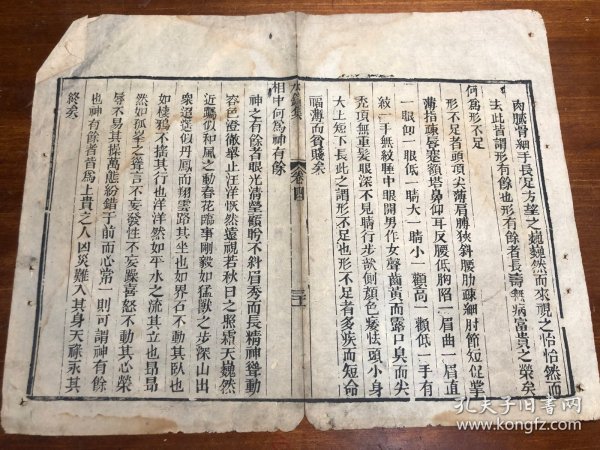 肉膩骨細手長足方望之巍巍然而來視之怡怡然而
去此皆謂形有餘也形有餘者長壽無病富貴之榮矣
何爲形不足
形不足者頭頂尖薄肩膊狹斜腰肋疎細肘節短促掌
薄指疎唇蹇額塌鼻仰耳反腰低胸陷一眉曲一眉直
一眼仰一眼低一睛大一睛小一顴高一顴低一手有
紋一手無紋睡中眼開男作女聲齒黃而露口臭而尖
禿頂無重髮眼深不見睛行步欹側顏色痿怯頭小身
大上短下長此之謂形不足也形不足者多疾而短命
福薄而貧賤矣
水鏡集
卷四
三十
相中何爲神有餘
神之有餘者眼光清瑩顧盼不斜眉秀而長精神聳動
容色澄徹舉止汪洋恢然遠視若秋日之照霜天巍然
近矚似和風之動春花臨事剛毅如猛獸之步深山出
衆迢遙似丹鳳而翔雲路其坐也如界石不動其臥也
如棲鴉不搖其行也洋洋然如平水之流其立也昂昂
然如孤峯之聳言不妄發性不妄躁喜怒不動其心榮
辱不易其操萬態紛錯于前而心常一則可謂神有餘
也神有餘者皆爲上貴之人凶災難入其身天祿永其
終矣
孔夫子旧书网
www.kongfz.com